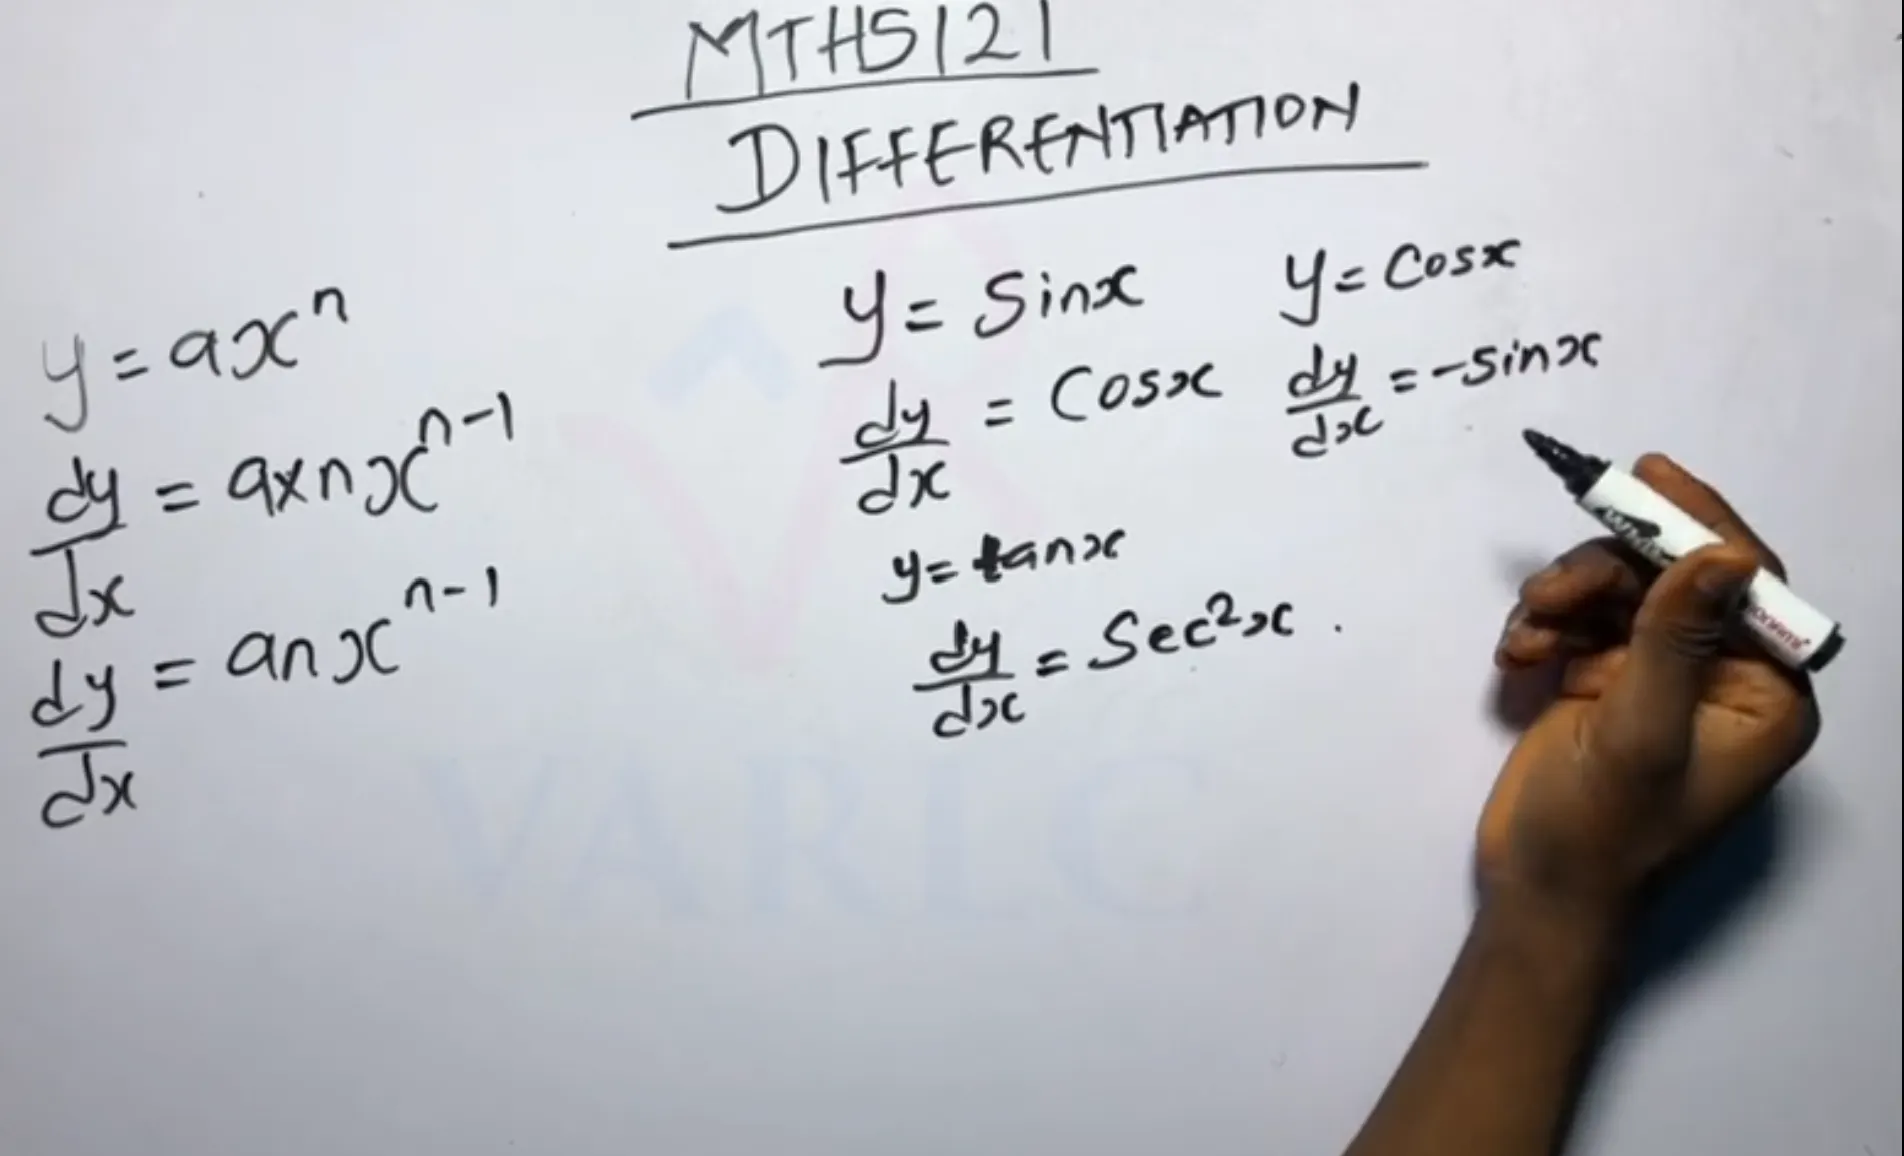 MTHS121
DIFFERENTIATION
y = axⁿ
dy/dx = a×nxⁿ⁻¹
dy/dx = anxⁿ⁻¹
y = Sinx
dy/dx = Cosx
y = tanx
dy/dx = Sec²x .
y = Cosx
dy/dx = -sinx
VARLC